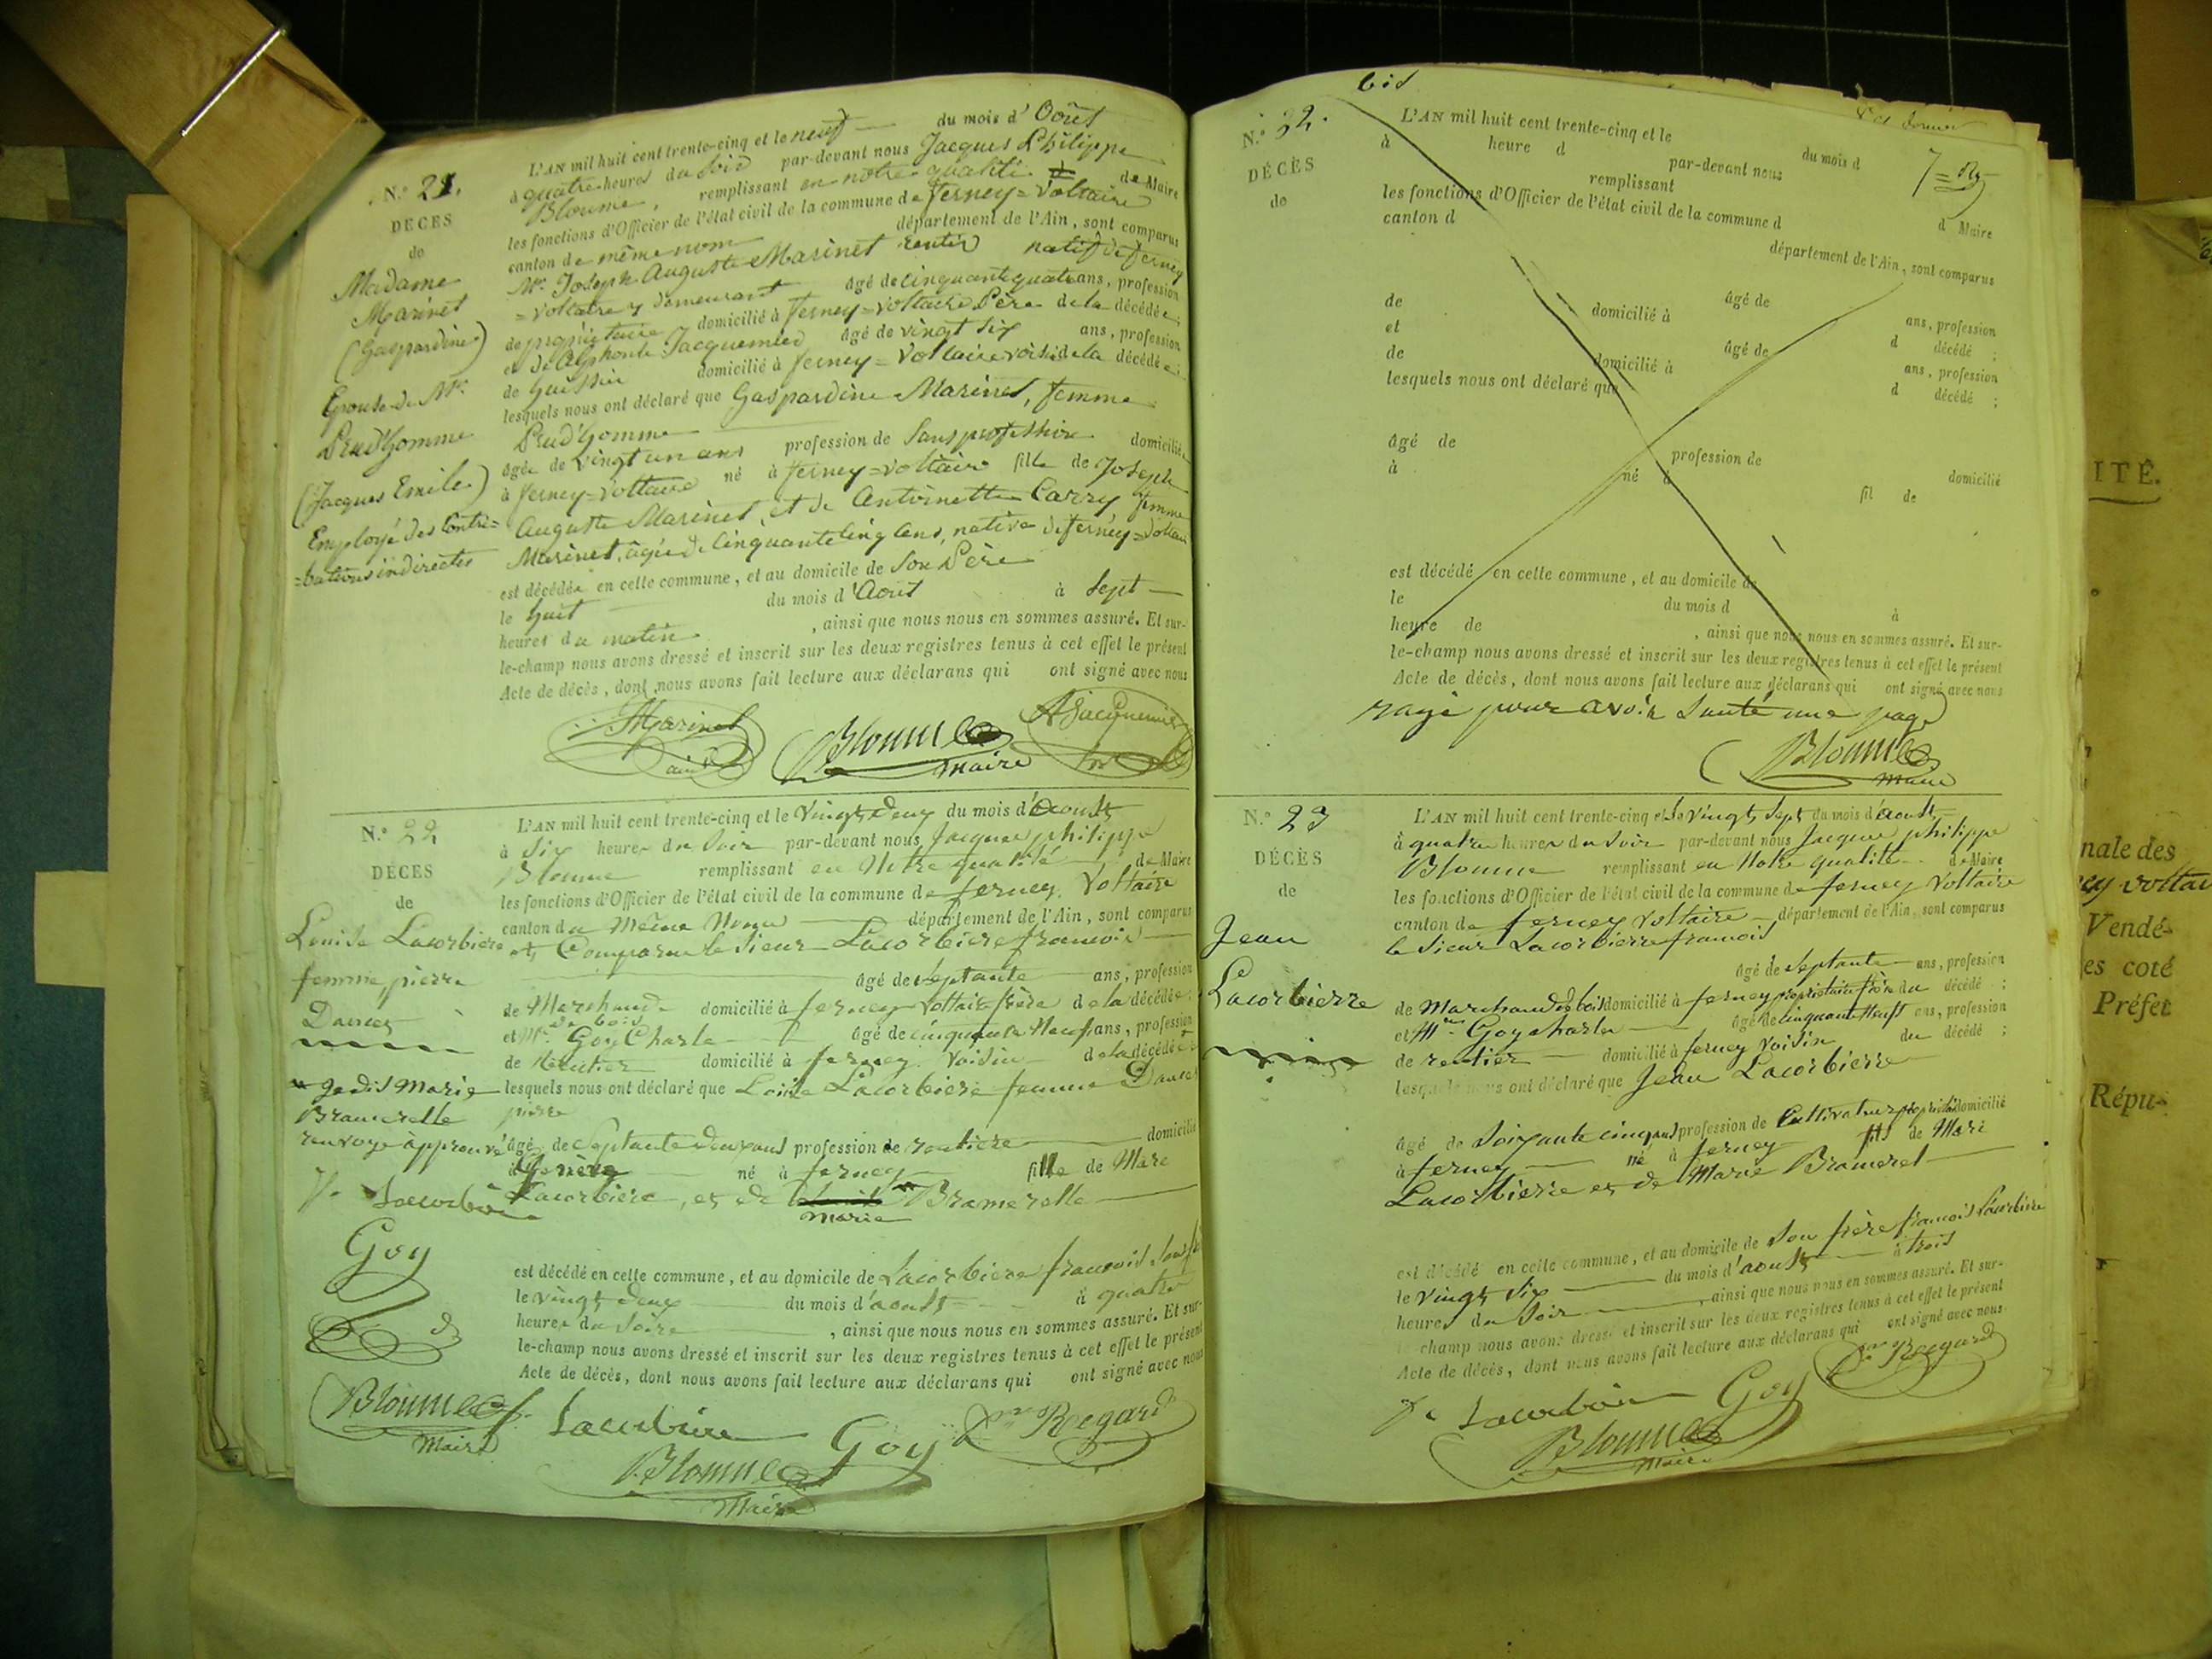 N.° 21.
DÉCÈS
de
Madame
Marinet
(Gaspardine)
Epouse de Mr.
Prud'homme
(Jacques Emile)
Employé des Contri=
=butions indirectes
L'AN mil huit cent trente-cinq et le neuf du mois d'Août
à quatre heures du soir par-devant nous Jacques Philippe
Bloume, remplissant en notre qualité de Maire
les fonctions d'Officier de l'état civil de la commune de ferney=Voltaire
canton de même nom département de l'Ain, sont comparus
Mr. Joseph Auguste Marinet rentier natif de ferney
=Voltaire y demeurant âgé de cinquante quatre ans, profession
de propriétaire domicilié à ferney=Voltaire Père de la décédée;
et de Alphonse Jacquemier âgé de vingt six ans, profession
de huissier domicilié à ferney=Voltaire voisin de la décédée;
lesquels nous ont déclaré que Gaspardine Marinet, femme
Prud'homme
âgée de vingt un ans profession de Sans profession domiciliée
à ferney=Voltaire né à ferney=Voltaire fille de Joseph
Auguste Marinet, et de Antoinette Carry femme
Marinet, agée de Cinquante Cinq ans, native de ferney=Voltaire
est décédée en cette commune, et au domicile de Son Père
le huit du mois d'Août à Sept
heures du matin, ainsi que nous nous en sommes assuré. Et sur-
le-champ nous avons dressé et inscrit sur les deux registres tenus à cet effet le présent
Acte de décès, dont nous avons fait lecture aux déclarans qui ont signé avec nous
Marinet
ainé
Bloume
maire
AJacquemier
N.° 22
DÉCÈS
de
Louise Lacorbiere
femme, pierre
Dances
Marie
Bramerelle
renvoye approuvé
Lacorbière
Goy
Bloume
Maire
L'AN mil huit cent trente-cinq et le vingt deux du mois d'aoust
à Six heures du Soir par-devant nous Jacque philippe
Bloume remplissant en Notre qualité de Maire
les fonctions d'Officier de l'état civil de la commune de ferney Voltaire
canton du Même Nom département de l'Ain, sont comparus
et Comparu le Sieur Lacorbiere francois
âgé de Septante ans, profession
de Marchand de bois domicilié à ferney Voltaire frère de la décédée;
et Mr. Goy Charle âgé de cinquante Neuf ans, profession
de Rentier domicilié à ferney Voisin de la décédée
lesquels nous ont déclaré que Louise Lacorbiere femme Dances
pierre
âgé de Septante deux ans profession de rentiere domicilié
à né à ferney fille de Marc
Lacorbiere, et de marie Bramerelle
est décédé en cette commune, et au domicile de Lacorbiere francois
le vingt deux du mois d'aoust à quatre
heures du Soire, ainsi que nous nous en sommes assuré. Et sur-
le-champ nous avons dressé et inscrit sur les deux registres tenus à cet effet le présent
Acte de décès, dont nous avons fait lecture aux déclarans qui ont signé avec nous
Lacorbière
Goy
Regard
Bloume
Maire
bis
N.° 22.
DÉCÈS
de
L'AN mil huit cent trente-cinq et le du mois d
à heure d par-devant nous
remplissant d Maire
les fonctions d'Officier de l'état civil de la commune d
canton d département de l'Ain, sont comparus
âgé de ans, profession
de domicilié à d décédé;
et âgé de ans, profession
de domicilié à d décédé;
lesquels nous ont déclaré que
âgé de profession de domicilié
à né à fil de
est décédé en cette commune, et au domicile de
le du mois d à
heure de, ainsi que nous nous en sommes assuré. Et sur-
le-champ nous avons dressé et inscrit sur les deux registres tenus à cet effet le présent
Acte de décès, dont nous avons fait lecture aux déclarans qui ont signé avec nous
rayé pour avoir Sauté une page
Bloume
maire
N.° 23
DÉCÈS
de
Jean
Lacorbierre
L'AN mil huit cent trente-cinq et le vingt Sept du mois d'aoust
à quatre heures du Soir par-devant nous Jacque philippe
Bloume remplissant en Notre qualité de Maire
les fonctions d'Officier de l'état civil de la commune de ferney Voltaire
canton de ferney Voltaire département de l'Ain, sont comparus
le Sieur Lacorbierre francois
âgé de Septante ans, profession
de Marchand de bois domicilié à ferney propriétaire frère du décédé;
et Mr. Goy charle âgé de cinquante Neuf ans, profession
de rentier domicilié à ferney Voisin du décédé;
lesquels nous ont déclaré que Jean Lacorbierre
âgé de Soixante cinq ans profession de Cultivateur propriétaire domicilié
à ferney né à ferney fils de Marc
Lacorbierre et de Marie Brameret
est décédé en cette commune, et au domicile de Son frère francois Lacorbiere
le vingt Six du mois d'aoust à trois
heures du Soir, ainsi que nous nous en sommes assuré. Et sur-
le-champ nous avons dressé et inscrit sur les deux registres tenus à cet effet le présent
Acte de décès, dont nous avons fait lecture aux déclarans qui ont signé avec nous
Lacorbière
Goy
Regard
Bloume
Maire
ITÉ.
nale des
Vendé-
es coté
Préfet
Répu-